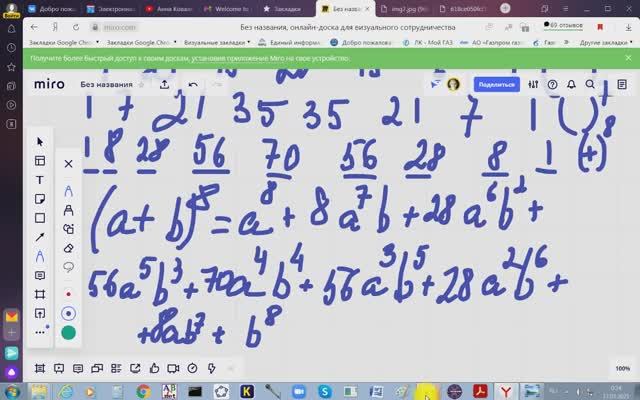 Добро пожа
Электронно
Анна Ковал
Welcome to
Закладки
Без назва
img3.jpg (96
618ce0509c1
Войти
miro.com
Без названия, онлайн-доска для визуального сотрудничества
69 отзывов
Закладки Google Chro
Закладки Google Chro
Визуальные закладки
Единый информ
Добро пожаловать!
ЛК - Мой ГАЗ
АО «Газпром газо
Другие закладки
Получите более быстрый доступ к своим доскам, установив приложение Miro на свое устройство.
miro Без названия Поделиться
1 7 21 35 35 21 7 1 ( )
1 8 28 56 70 56 28 8 1 (+)⁸
(a+b)⁸ = a⁸ + 8a⁷b + 28a⁶b² +
56a⁵b³ + 70a⁴b⁴ + 56a³b⁵ + 28a²b⁶ +
+8ab⁷ + b⁸
100%
0:24